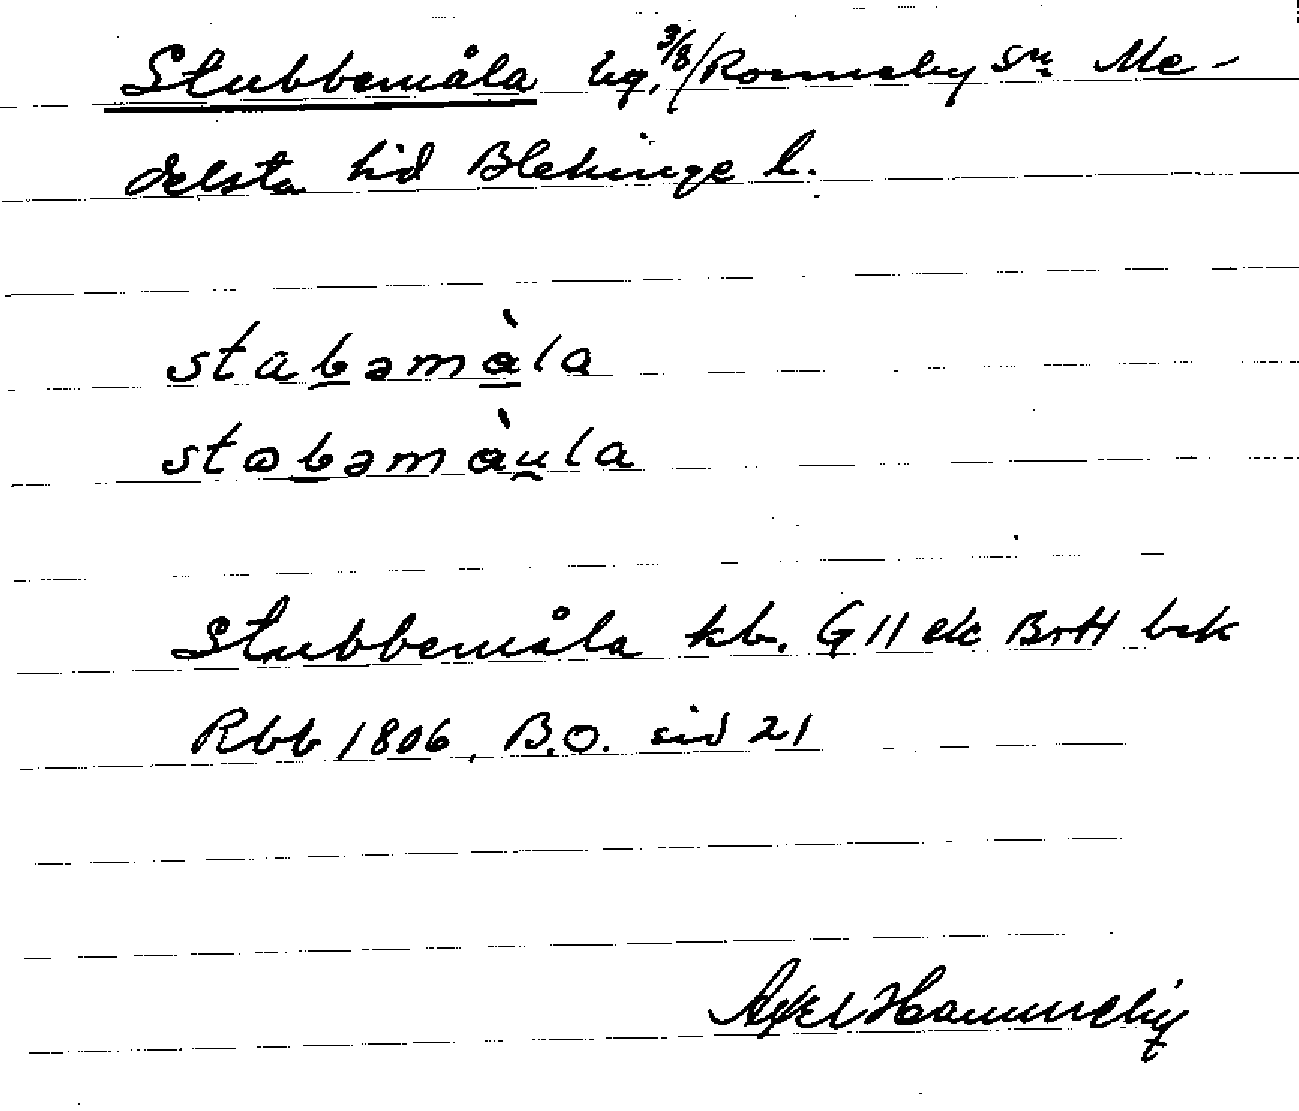 Stubbemåla hg, 3/8/Ronneby sn. Me-
delsta hd Blekinge l.
stabəmàla
stɷbəmàu̯la
Stubbemåla kb. G 11 ek BrH bek
Rbb 1806, B.O. sid 21
Axel Hammneby